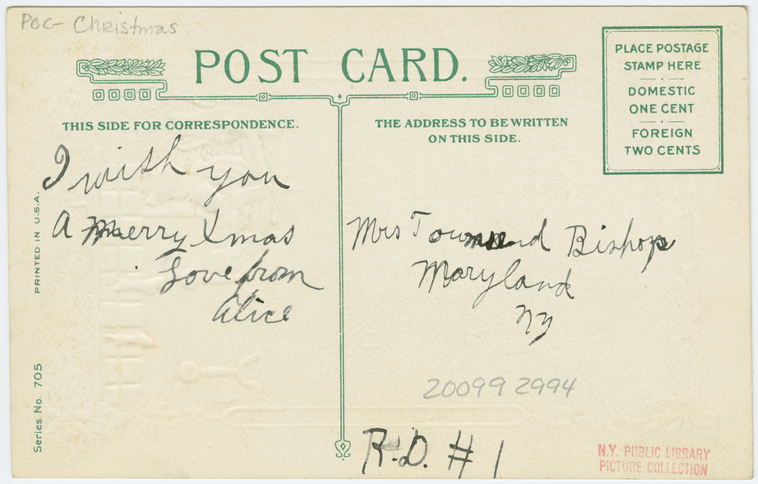 PoC - Christmas
POST CARD.
PLACE POSTAGE
STAMP HERE
DOMESTIC
ONE CENT
FOREIGN
TWO CENTS
THIS SIDE FOR CORRESPONDENCE.
THE ADDRESS TO BE WRITTEN
ON THIS SIDE.
I wish you
A Merry Xmas
Love from
Alice
Mrs Townsend Bishop
Maryland
NY
20099 2994
R.D. # 1
PRINTED IN U.S.A.
Series No. 705
N.Y. PUBLIC LIBRARY
PICTURE COLLECTION